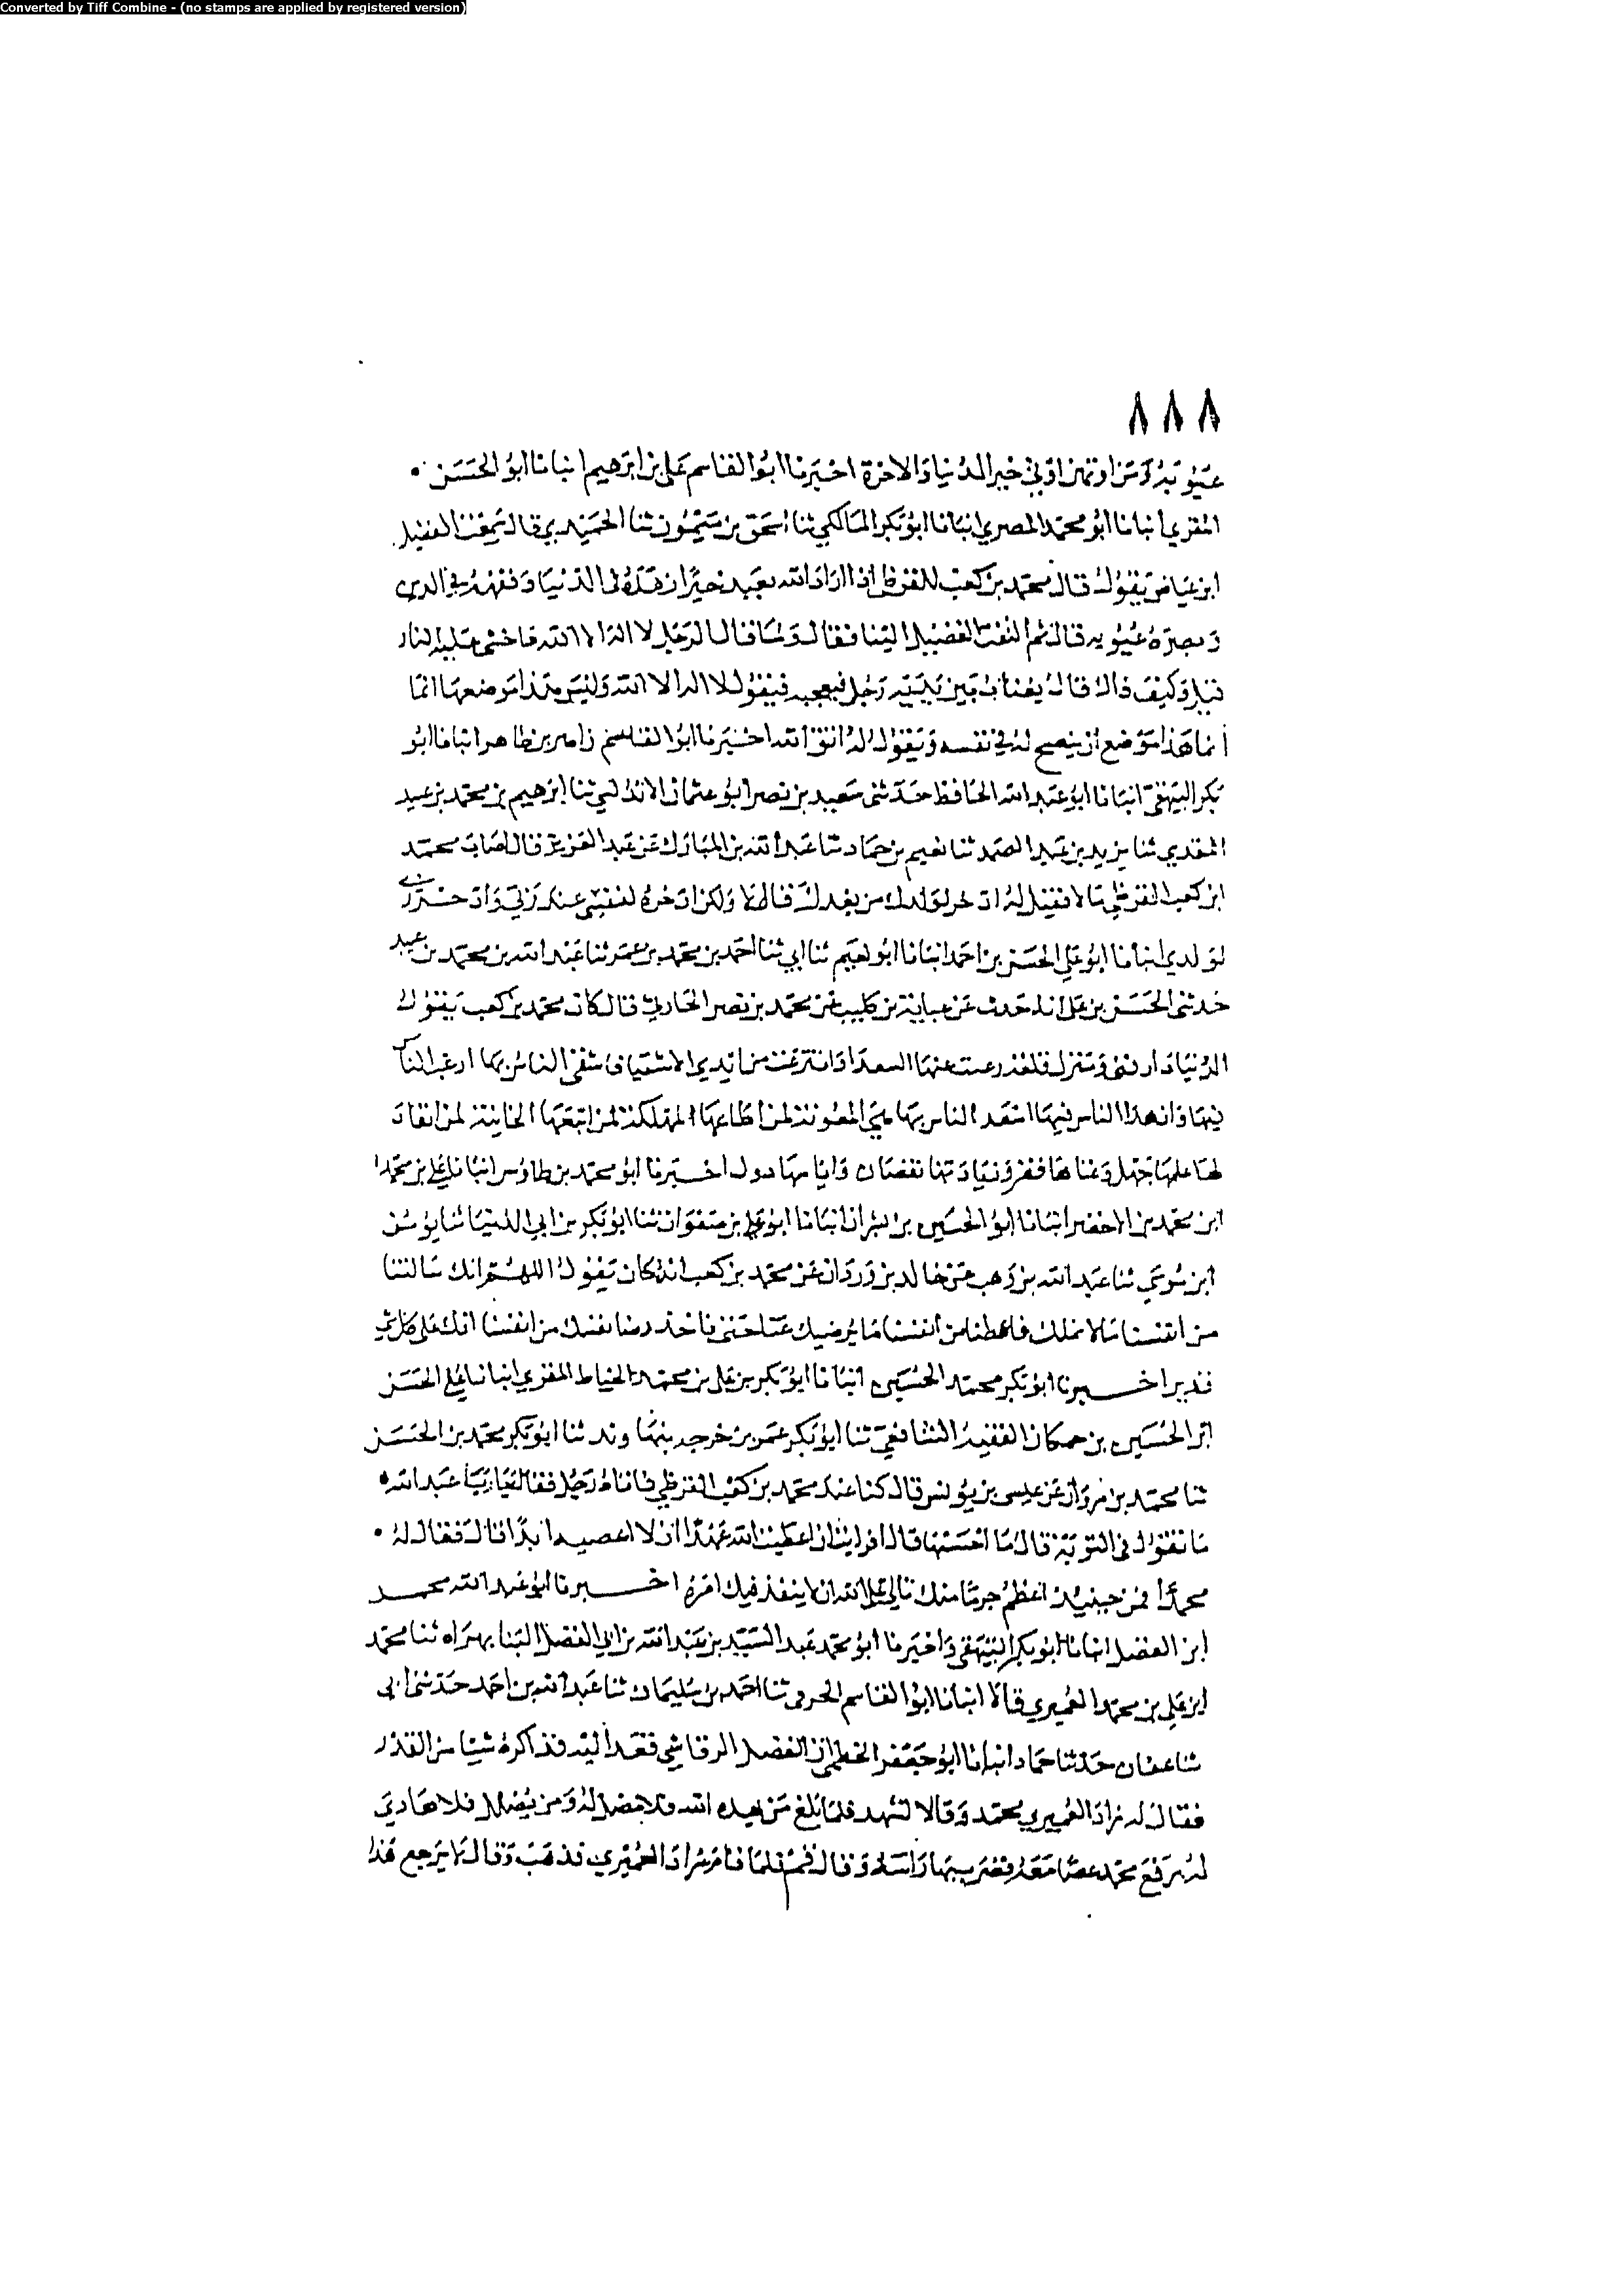 Converted by Tiff Combine - (no stamps are applied by registered version)
٨٨٨
عيوبه ومن اوتيهن اوتي خير الدنيا والاخرة اخبرنا ابو القاسم علي بن ابرهيم انبانا ابو الحسن
المقري انبانا ابو محمد المصري انبانا ابو بكر المالكي ثنا اسحق بن ميمون ثنا الحميدي قال سمعت الفضيل
ابن عياض يقول قال محمد بن كعب القرظي اذا اراد الله بعبد خيرا زهده في الدنيا وفقهه في الدين
وبصره عيوبه قال ثم التفت الفضيل الينا فقال ربما قال الرجل لا اله الا الله فاخشى عليه النار
قيل وكيف ذاك قال يغتاب بين يديه رجل فيعجبه فيقول لا اله الا الله وليس هذا موضعها انما
انما هذا موضع ان ينصح له في نفسه ويقول له اتق الله اخبرنا ابو القاسم زاهر بن طاهر انبانا ابو
بكر البيهقي انبانا ابو عبد الله الحافظ حدثني سعيد بن نصر ابو عثمان الاندلسي ثنا ابرهيم بن محمد بن عبيد
المقدي ثنا يزيد بن عبد الصمد ثنا نعيم بن حماد ثنا عبد الله بن المبارك عن عبد العزيز قال اصاب محمد
ابن كعب القرظي مالا فقيل له ادخر لولدك من بعدك قال لا ولكن ادخره لنفسي عند ربي وادخر ربي
لولدي انبانا ابو علي الحسن بن احمد انبانا ابو نعيم ثنا ابي ثنا احمد بن محمد بن عمر ثنا عبد الله بن محمد بن عبيد
حدثني الحسن بن علي انه حدث عن عباية بن كليب عن محمد بن نصر الحارثي قال كان محمد بن كعب يقول
الدنيا دار فنى ومنزل قلعة رغبت عنها السعدا وانتزعت من ايدي الاشقيا فاشقى الناس بها ارغب الناس
فيها وازهد الناس فيها اسعد الناس بها هي المغوية لمن اطاعها المهلكة لمن اتبعها الخاينة لمن انقاد
لها علمها جهل وغناها فقر وزيادتها نقصان وايامها دول اخبرنا ابو محمد بن طاوس انبانا علي بن محمد
ابن محمد بن الاخضر انبانا ابو الحسين بن بشران انبانا ابو علي بن صفوان ثنا ابو بكر بن ابي الدنيا ثنا يوسف
ابن موسى ثنا عبد الله بن وهب عن خالد بن وردان عن محمد بن كعب انه كان يقول اللهم انك سالتنا
من انفسنا ما لا نملك فاعطنا من انفسنا ما يرضيك عنا حتى تاخذ رضا نفسك من انفسنا انك على كل شي
قدير اخبرنا ابو بكر محمد الحسين انبانا ابو بكر بن علي بن محمد الخياط المقري انبانا علي الحسن
ابن الحسين بن حمكان الفقيه الشافعي ثنا ابو بكر عمر بن خرجه بنها وند ثنا ابو بكر محمد بن الحسن
ثنا محمد بن مروان عن عيسى بن يونس قال كنا عند محمد بن كعب القرظي فاتاه رجل فقال يا ابا عبد الله
ما تقول في التوبة قال ما احسنها قال افرايت ان اعطيت الله عهدا ان لا اعصيه ابدا قال فقال له
محمد فمن حينيذ اعظم جرما منك تالى على الله ان لا ينفذ فيك امره اخبرنا ابو عبد الله محمد
ابن الفضل انبانا ابو بكر البيهقي واخبرنا ابو محمد عبد السيد بن عبد الله بن ابي الفضل البنا بهراه ثنا محمد
ابن علي بن محمد العميري قالا انبانا ابو القاسم الحرفي ثنا احمد بن سليمان ثنا عبد الله بن احمد حدثني ابي
ثنا عفان حدثنا حماد انبانا ابو جعفر الخطمي ان الفضل الرقاشي قعد اليه فذاكره شيا من القدر
فقال له زاد العميري محمد وقالا تشهد فلما بلغ من يهده الله فلا مضل له ومن يضلل فلا هادي
له رفع محمد عصا معه فضرب بها راسه وقال قم فلما قام زاد العميري فذهب وقال لا يرجع هذا